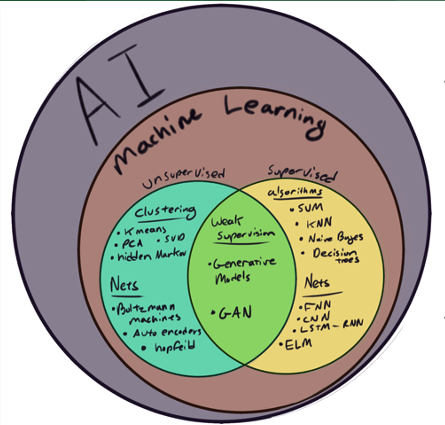 AI
Machine Learning
Unsupervised
Supervised
Clustering
• K means
• PCA • SVD
• hidden Markov
Nets
• Boltzmann
machines
• Auto encoders
• hopfeild
Weak
Supervision
• Generative
Models
• GAN
algorithms
• SVM
• KNN
• Naive Bayes
• Decision
trees
Nets
• FNN
• CNN
• LSTM - RNN
• ELM